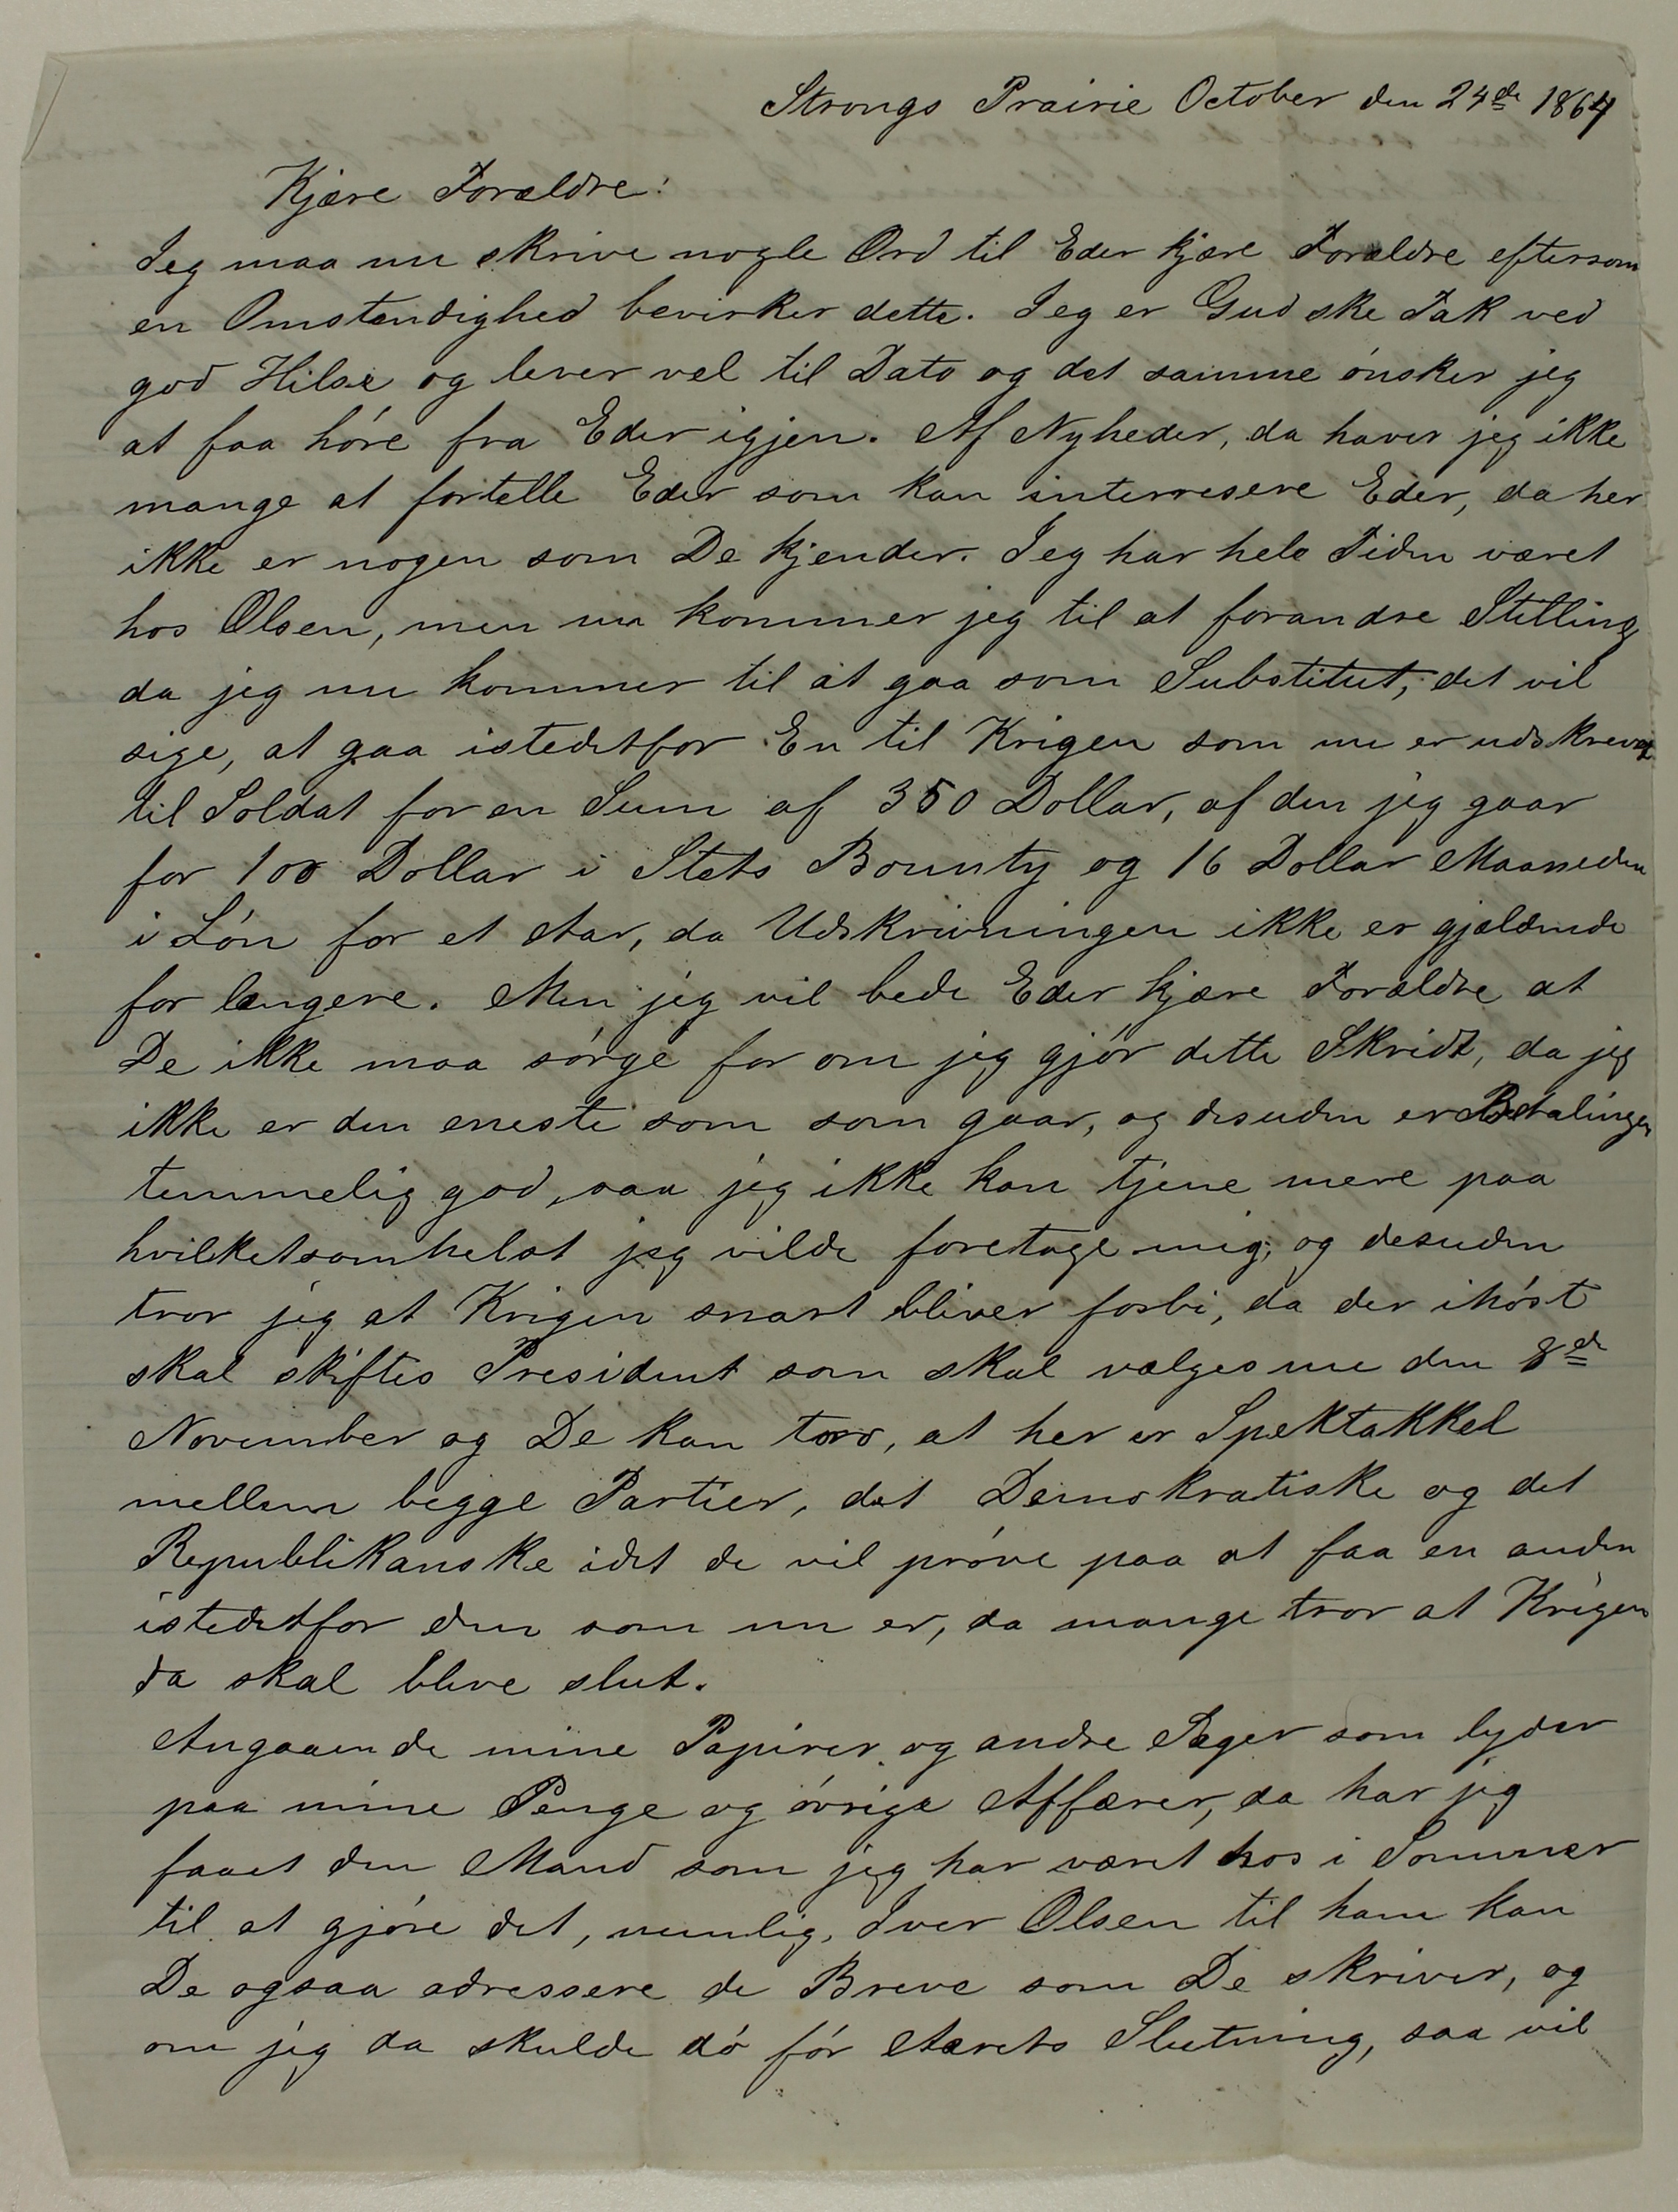 Strongs Prairie October den 24de 1864
Kjære Forældre!
Jeg maa nu skrive nogle Ord til Eder kjære Forældre eftersom
en Omstændighed bevirker dette. Jeg er Gud ske Tak ved
god Hilse og lever vel til Dato og det samme ónsker jeg
at faa hóre fra Eder igjen. Af Nyheder, da haver jeg ikke
mange at fortelle Eder som kan interresere Eder, da her
ikke er nogen som De kjender. Jeg har hele Tiden været
hos Olsen, men nu kommer jeg til at forandre Stilling
da jeg nu kommer til at gaa som Substitut, det vil
sige, at gaa istedetfor En til Krigen som nu er udskrevet
til Soldat for en Sum af 350 Dollar, af den jeg gaar
for 100 Dollar i Stets Bounty og 16 Dollar Maaneden
i Lón for et Aar, da Udskrivningen ikke er gjældende
for længere. Men jeg vil bede Eder kjære Forældre at
De ikke maa sórge for om jeg gjór dette Skridt, da jeg
ikke er den eneste som som gaar, og desuden er Betalingen
temmelig god, saa jeg ikke kan tjene mere paa
hvilketsomhelst jeg vilde foretage mig; og desuden
tror jeg at Krigen snart bliver forbi, da der ihóst
skal skiftes President som skal vælges nu den 8de
November og De kan toro, at her er Spektakkel
mellem begge Partier, det Demokratiske og det
Republikanske idet de vil próve paa at faa en anden
istedetfor den som nu er, da mange tror at Krigen
da skal blive slut.
Angaaende mine Papirer og andre Sager som lyder
paa mine Penge og óvrige Affærer, da har jeg
faaet den Mand som jeg har været hos i Sommer
til at gjóre det, nemlig, Iver Olsen til ham kan
De ogsaa adressere de Breve som De skriver, og
om jeg da skulde dó fór Aarets Slutning, saa vil